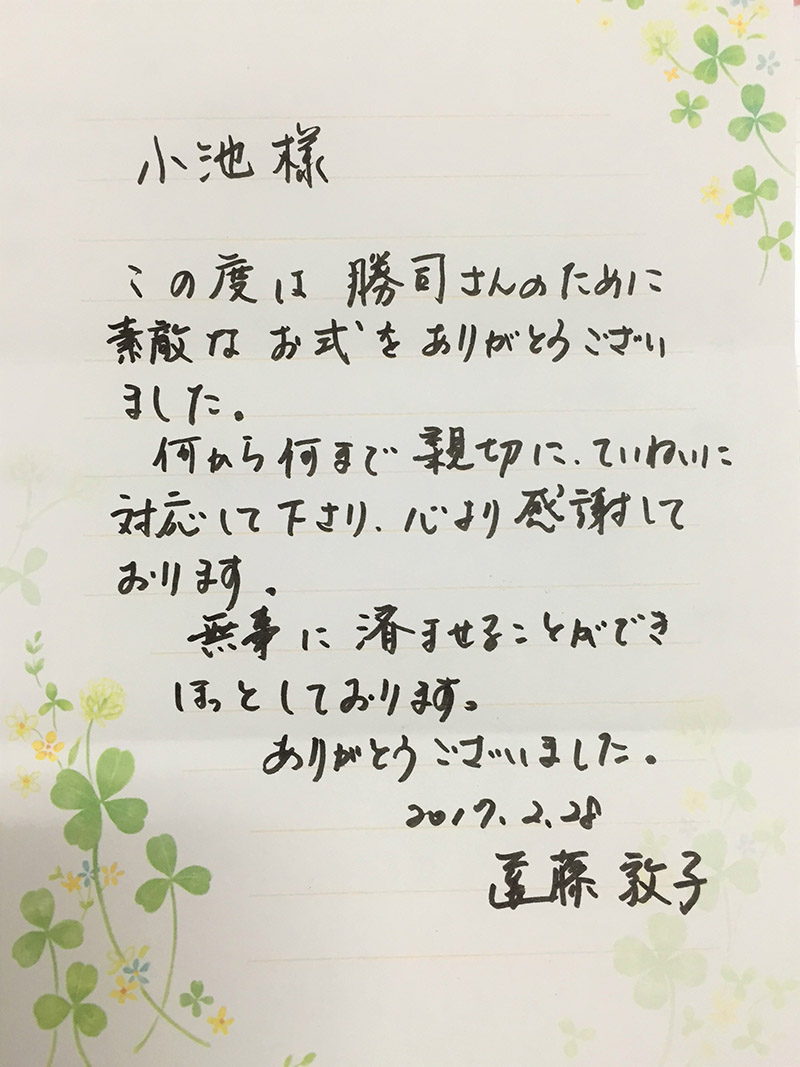 小池様
この度は 勝司さんのために
素敵な お式を ありがとうござい
ました。
何から何まで 親切に、ていねいに
対応して下さり、心より感謝して
おります。
無事に 済ませることができ
ほっとしております。
ありがとうございました。
2017.2.28
遠藤 敦子